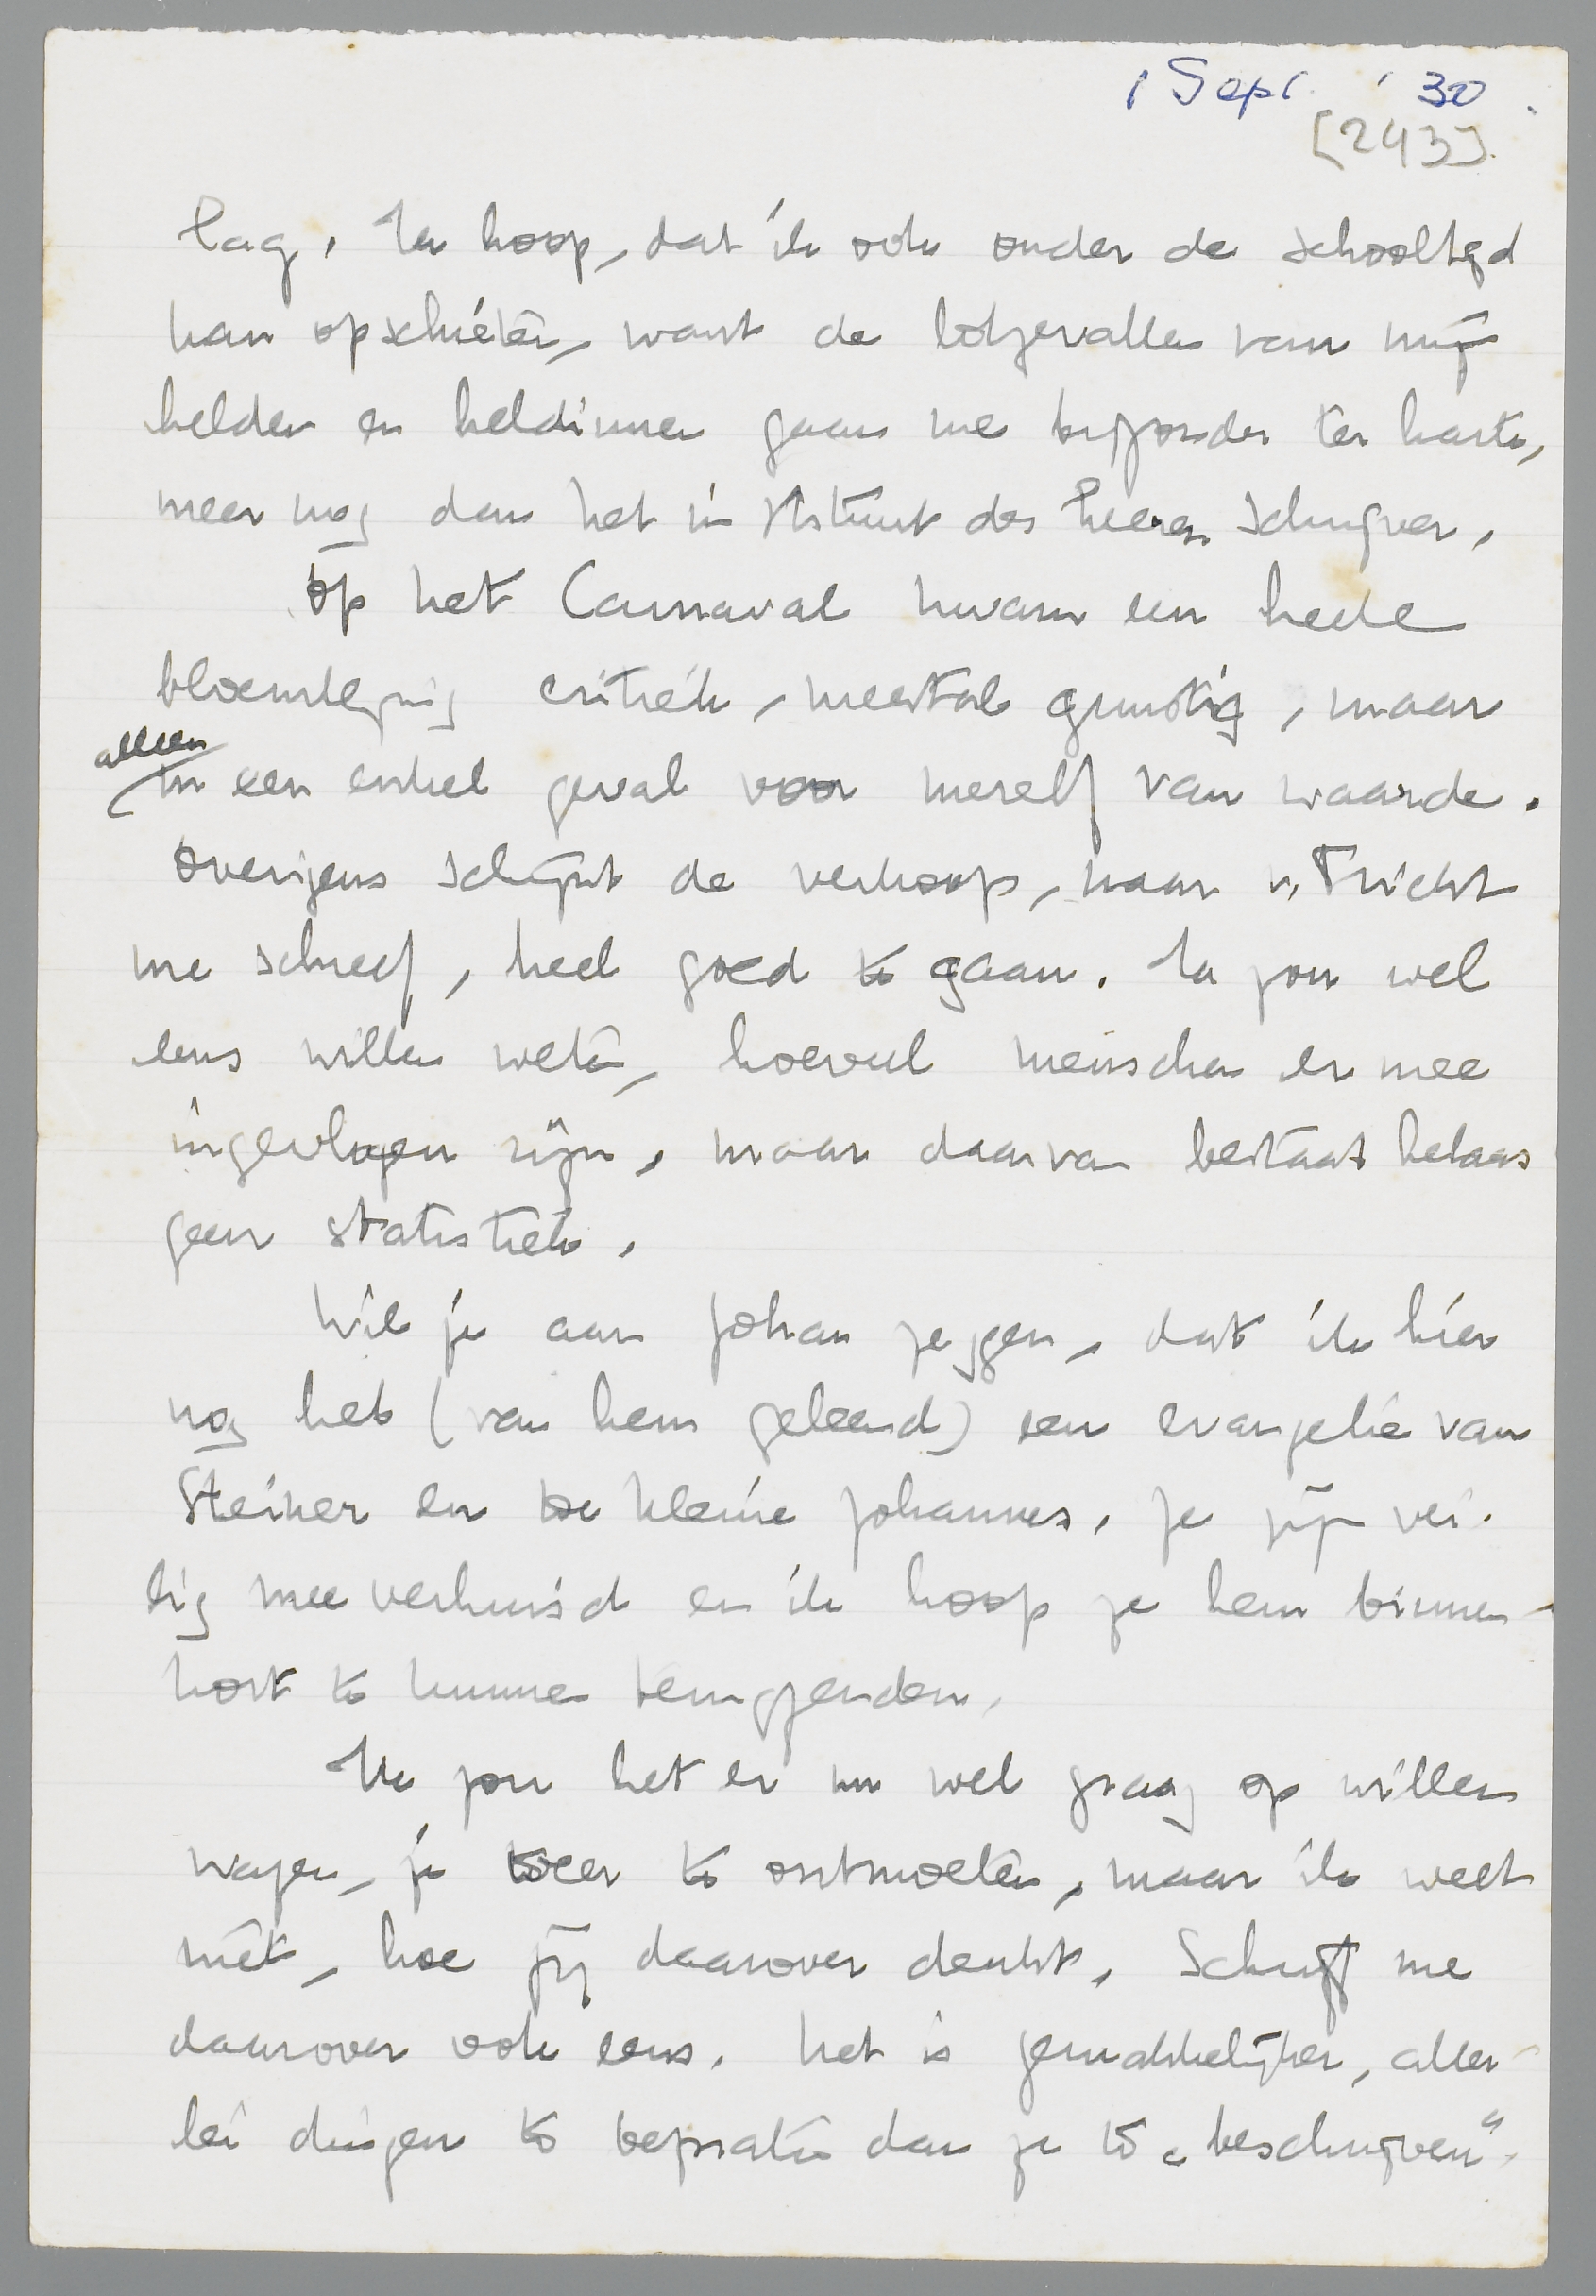 1 Sept. '30.
[243].
lag. Ik hoop, dat ik ook onder de schooltijd
kan opschieten, want de lotgevallen van mijn
helden en heldinnen gaan me bijzonder ter harte,
meer nog dan het in Ststuut des heeren Schrijver.
Op het Carnaval kwam een heele
bloemlezing critiek, meestal gunstig, maar
alleen
in een enkel geval voor mezelf van waarde.
Overigens schijnt de verkoop, naar v. Tricht
me schreef, heel goed te gaan. Ik zou wel
eens willen weten, hoeveel menschen er mee
ingevlogen zijn, maar daarvan bestaat helaas
geen statistiek.
Wil je aan Johan zeggen, dat ik hier
nog heb (van hem geleend) een evangelie van
Steiner en de kleine Johannes. Ze zijn vei-
lig meeverhuisd en ik hoop ze hem binnen-
kort te kunnen terugzenden.
Ik zou het er nu wel graag op willen
wagen, je weer te ontmoeten, maar ik weet
niet, hoe jij daarover denkt. Schrijf me
daarover ook eens. Het is gemakkelijker, aller-
lei dingen te bepraten dan ze te „beschrijven".